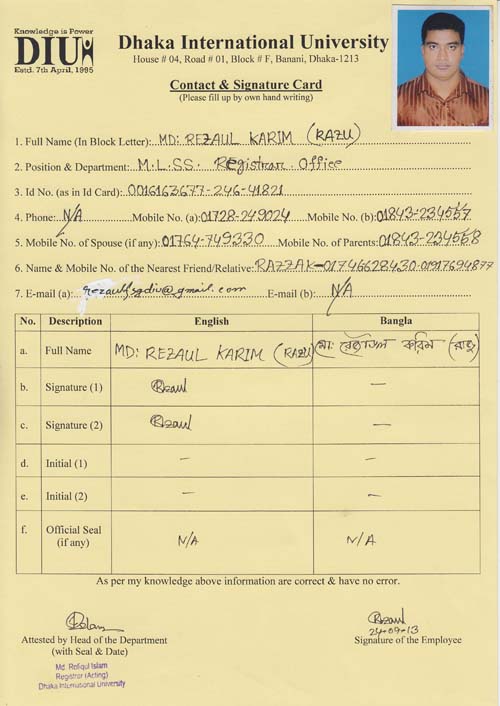 Knowledge is Power
DIU
Estd. 7th April, 1995
Dhaka International University
House # 04, Road # 01, Block # F, Banani, Dhaka-1213
Contact & Signature Card
(Please fill up by own hand writing)
1. Full Name (In Block Letter): MD: REZAUL KARIM (RAZU)
2. Position & Department: M.L.SS. Registrar Office
3. Id No. (as in Id Card): 0016163677-246-41821
4. Phone: N/A Mobile No. (a): 01728-249024 Mobile No. (b): 01843-234557
5. Mobile No. of Spouse (if any): 01764-749330 Mobile No. of Parents: 01843-234558
6. Name & Mobile No. of the Nearest Friend/Relative: RAZZAK-01746628430-01917694877
7. E-mail (a): rezaulfsgdiu@gmail.com E-mail (b): N/A
No. Description English Bangla
a. Full Name MD: REZAUL KARIM (RAZU) মো: রেজাউল করিম (রাজু)
b. Signature (1) Rezaul –
c. Signature (2) Rezaul –
d. Initial (1) – –
e. Initial (2) – –
f. Official Seal (if any) N/A N/A
As per my knowledge above information are correct & have no error.
Rezaul
24-09-13
Attested by Head of the Department Signature of the Employee
(with Seal & Date)
Md. Rofiqul Islam
Registrar (Acting)
Dhaka International University